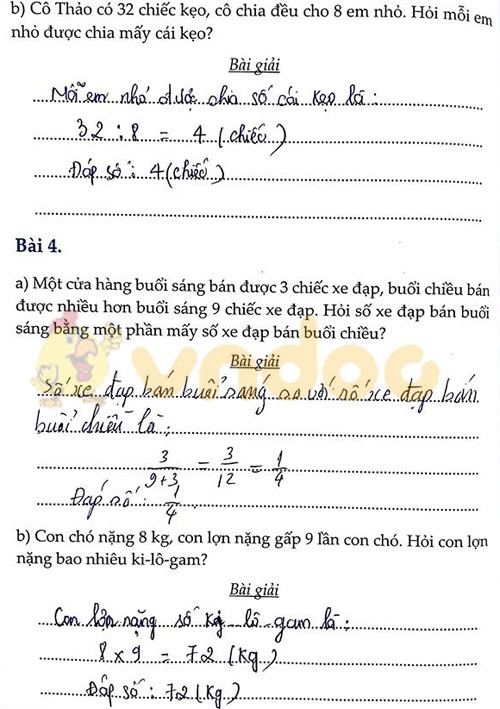 b) Cô Thảo có 32 chiếc kẹo, cô chia đều cho 8 em nhỏ. Hỏi mỗi em
nhỏ được chia mấy cái kẹo?
Bài giải
Mỗi em nhỏ được chia số cái kẹo là :
32 : 8 = 4 (chiếc)
Đáp số : 4 (chiếc)
Bài 4.
a) Một cửa hàng buổi sáng bán được 3 chiếc xe đạp, buổi chiều bán
được nhiều hơn buổi sáng 9 chiếc xe đạp. Hỏi số xe đạp bán buổi
sáng bằng một phần mấy số xe đạp bán buổi chiều?
vndoc
Bài giải
Số xe đạp bán buổi sáng so với số xe đạp bán
buổi chiều là :
3/(9+3) = 3/12 = 1/4
Đáp số : 1/4
b) Con chó nặng 8 kg, con lợn nặng gấp 9 lần con chó. Hỏi con lợn
nặng bao nhiêu ki-lô-gam?
Bài giải
Con lợn nặng số ki - lô - gam là :
8 x 9 = 72 (kg)
Đáp số : 72 (kg)